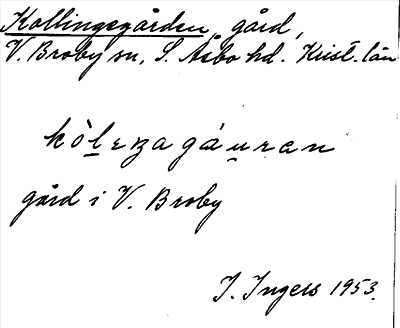 Kollingegården, gård,
V. Broby sn, S. Åsbo hd. Krist. län
gård i V. Broby
I. Ingers 1953.